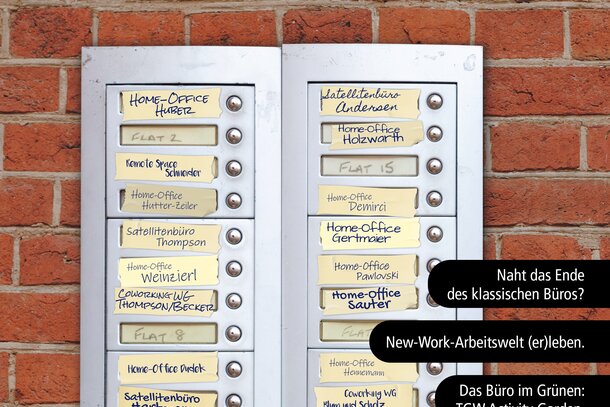 HOME-OFFICE
HUBER
FLAT 2
Remote Space
Schneider
Home-Office
Hutter-Zeiler
Satellitenbüro
Thompson
Home-Office
Weinzierl
COWORKING WG
THOMPSON/BECKER
FLAT 8
Home-Office Dudek
Satellitenbüro
Satellitenbüro
Andersen
Home-Office
Holzwarth
FLAT 15
Home-Office
Demirci
Home-Office
Gertmaier
Home-Office
Pawlovski
Home-Office
Sauter
FLAT
Home-Office
Hennemann
Coworking WG
Blum und Scholz
Naht das Ende
des klassischen Büros?
New-Work-Arbeitswelt (er)leben.
Das Büro im Grünen: